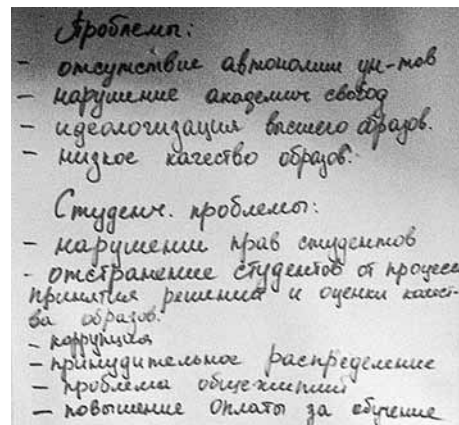 Проблемы:
- отсутствие автономии ун-тов
- нарушение академич свобод
- идеологизация высшего образов.
- низкое качество образов.
Студенч. проблемы:
- нарушении прав студентов
- отстранение студентов от процесса
принятия решения и оценки качест-
ва образов.
- коррупция
- принудительное распределение
- проблема общежитий
- повышение оплаты за обучение